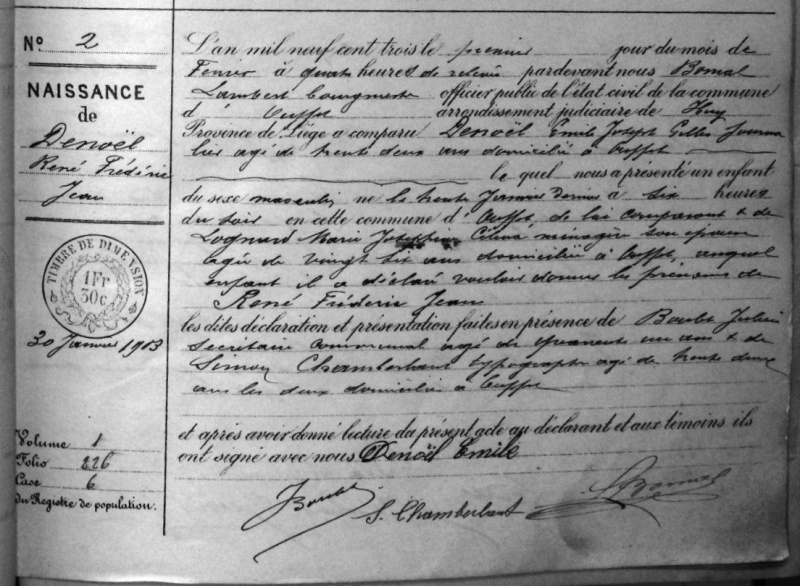 N° 2
NAISSANCE
de
Denoël
René Frédéric
Jean
TIMBRE DE DIMENSION
1 Fr
30 c
30 Janvier 1903
Volume 1
Folio 226
Case 6
du Registre de population.
L'an mil neuf cent trois le premier jour du mois de
Fevrier à quatre heures de relevée pardevant nous Bomal
Lambert bourgmestre officier public de l'état civil de la commune
d' Ouffet arrondissement judiciaire de Huy
Province de Liège a comparu Denoël Emile Joseph Gilles Journa
lier agé de trente deux ans domicilié à Ouffet
le quel nous a présenté un enfant
du sexe masculin né le trente Janvier dernier à six heures
du soir en cette commune d' Ouffet de lui comparant & de
Lognard Marie Joséphine Célina ménagère son épouse
agée de vingt six ans domiciliée à Ouffet, auquel
enfant il a déclaré vouloir donner les prénoms de
René Fréderic Jean
les dites déclaration et présentation faites en présence de Boulet Julien
secrétaire communal agé de quarante un ans & de
Simon Chamberlant typographe agé de trente deux
ans les deux domiciliés à Ouffet
et après avoir donné lecture du présent acte au déclarant et aux témoins ils
ont signé avec nous Denoël Emile
J Boulet
S. Chamberlant
L Bomal